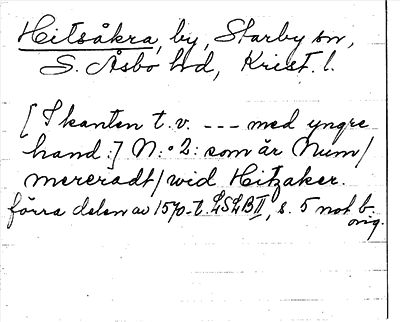 Hitsåkra, by, Starby sn,
S. Åsbo hd, Krist. l.
[I kanten t.v. --- med yngre
hand:] N:o 2: som är Num/
mereradt/ wid Hitzaker.
förra delen av 1570-t. LSLB II, s. 5 not b.
orig.